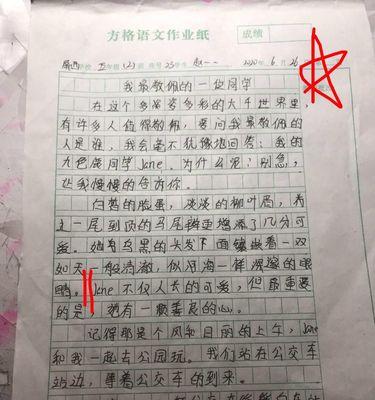 方格语文作业纸
成绩
学校 五年级(2)班 座号23学生 赵一一 2020年6月26
我最敬佩的一位同学
在这个多姿多彩的大千世界里，
有许多人值得敬佩，要问我最敬佩的
人是谁，我会毫不犹豫地回答：我的
九色鹿同学Jane。为什么呢？别急，
让我慢慢的告诉你。
白皙的脸蛋，淡淡的柳叶眉，再
一尾到顶的马尾辫更增添了几分可
爱。她有乌黑的头发下面镶嵌着一双
如天一般清澈，似河海一样深邃的眼
睛。Jane不仅人长的可爱，但最重要
的是，拥有一颗善良的心。
记得那是个风和日丽的上午，Jane
和我一起去公园玩。我们站在公交车
站边，等着公交车的到来。